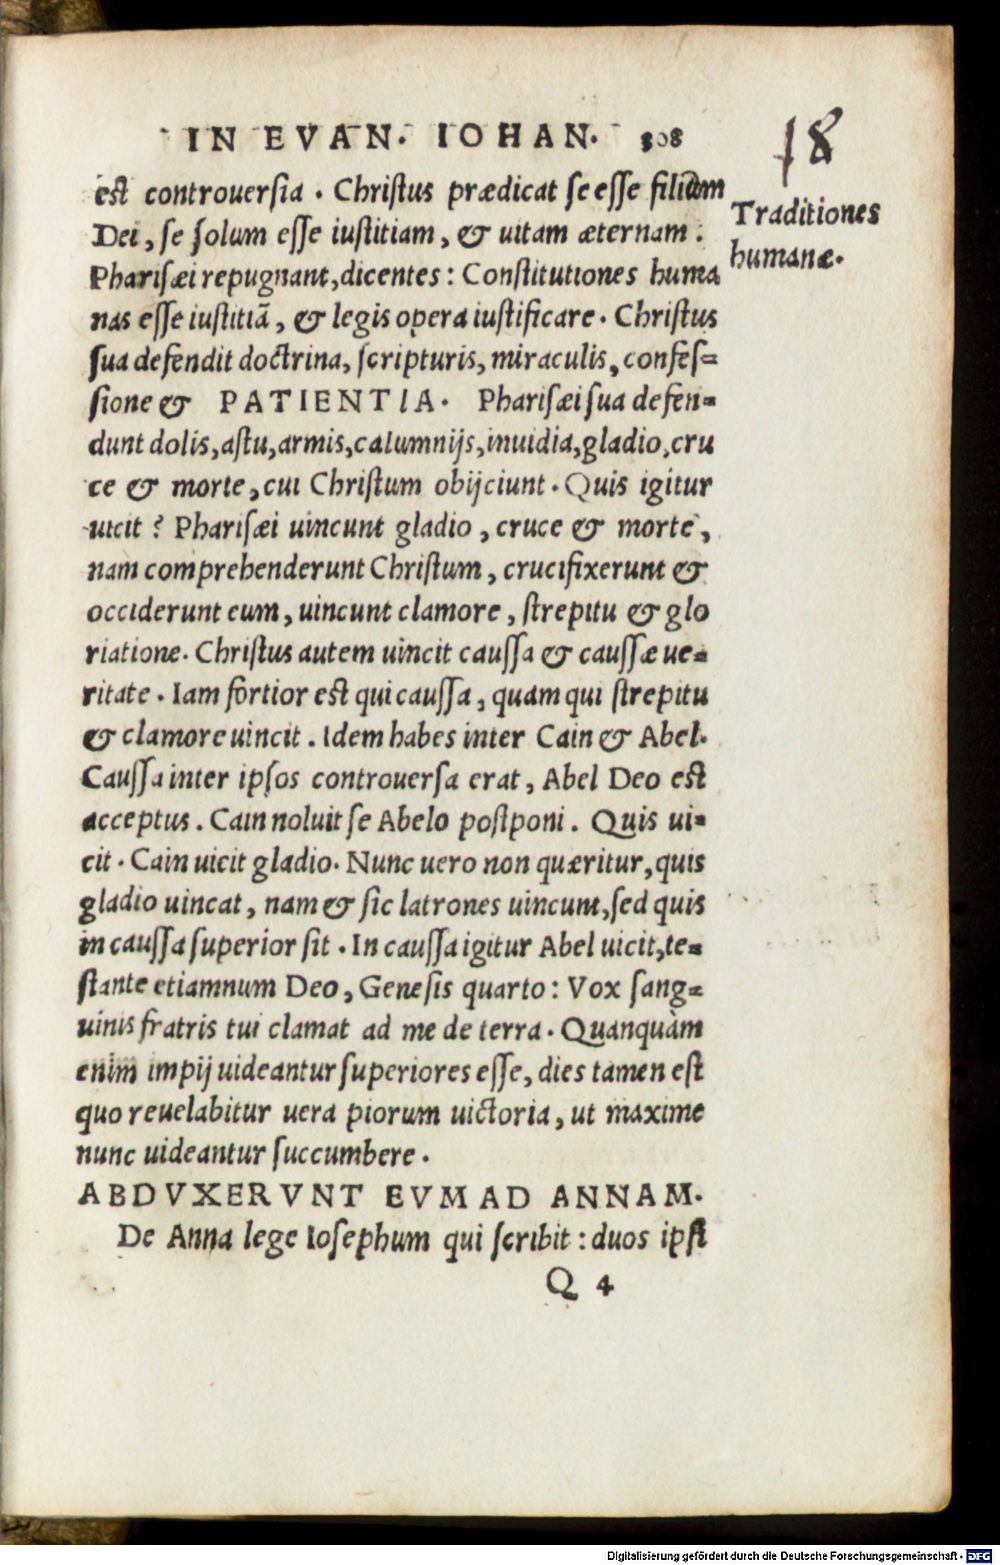 IN EVAN. IOHAN. 308
18
est controuersia. Christus prædicat se esse filium
Dei, se solum esse iustitiam, & uitam æternam.
Pharisæi repugnant, dicentes: Constitutiones huma
nas esse iustitiã, & legis opera iustificare. Christus
sua defendit doctrina, scripturis, miraculis, confes-
sione & PATIENTIA. Pharisæi sua defen-
dunt dolis, astu, armis, calumnijs, inuidia, gladio, cru
ce & morte, cui Christum obijciunt. Quis igitur
uicit? Pharisæi uincunt gladio, cruce & morte,
nam comprehenderunt Christum, crucifixerunt &
occiderunt eum, uincunt clamore, strepitu & glo
riatione. Christus autem uincit caussa & caussæ ue-
ritate. Iam fortior est qui caussa, quam qui strepitu
& clamore uincit. Idem habes inter Cain & Abel.
Caussa inter ipsos controuersa erat, Abel Deo est
acceptus. Cain noluit se Abelo postponi. Quis ui-
cit. Cain uicit gladio. Nunc uero non quæritur, quis
gladio uincat, nam & sic latrones uincunt, sed quis
in caussa superior sit. In caussa igitur Abel uicit, te-
stante etiamnum Deo, Genesis quarto: Vox sang-
uinis fratris tui clamat ad me de terra. Quanquàm
enim impij uideantur superiores esse, dies tamen est
quo reuelabitur uera piorum uictoria, ut maxime
nunc uideantur succumbere.
ABDVXERVNT EVM AD ANNAM.
De Anna lege Iosephum qui scribit: duos ipsi
Q 4
Traditiones
humanæ.
Digitalisierung gefördert durch die Deutsche Forschungsgemeinschaft - DFG